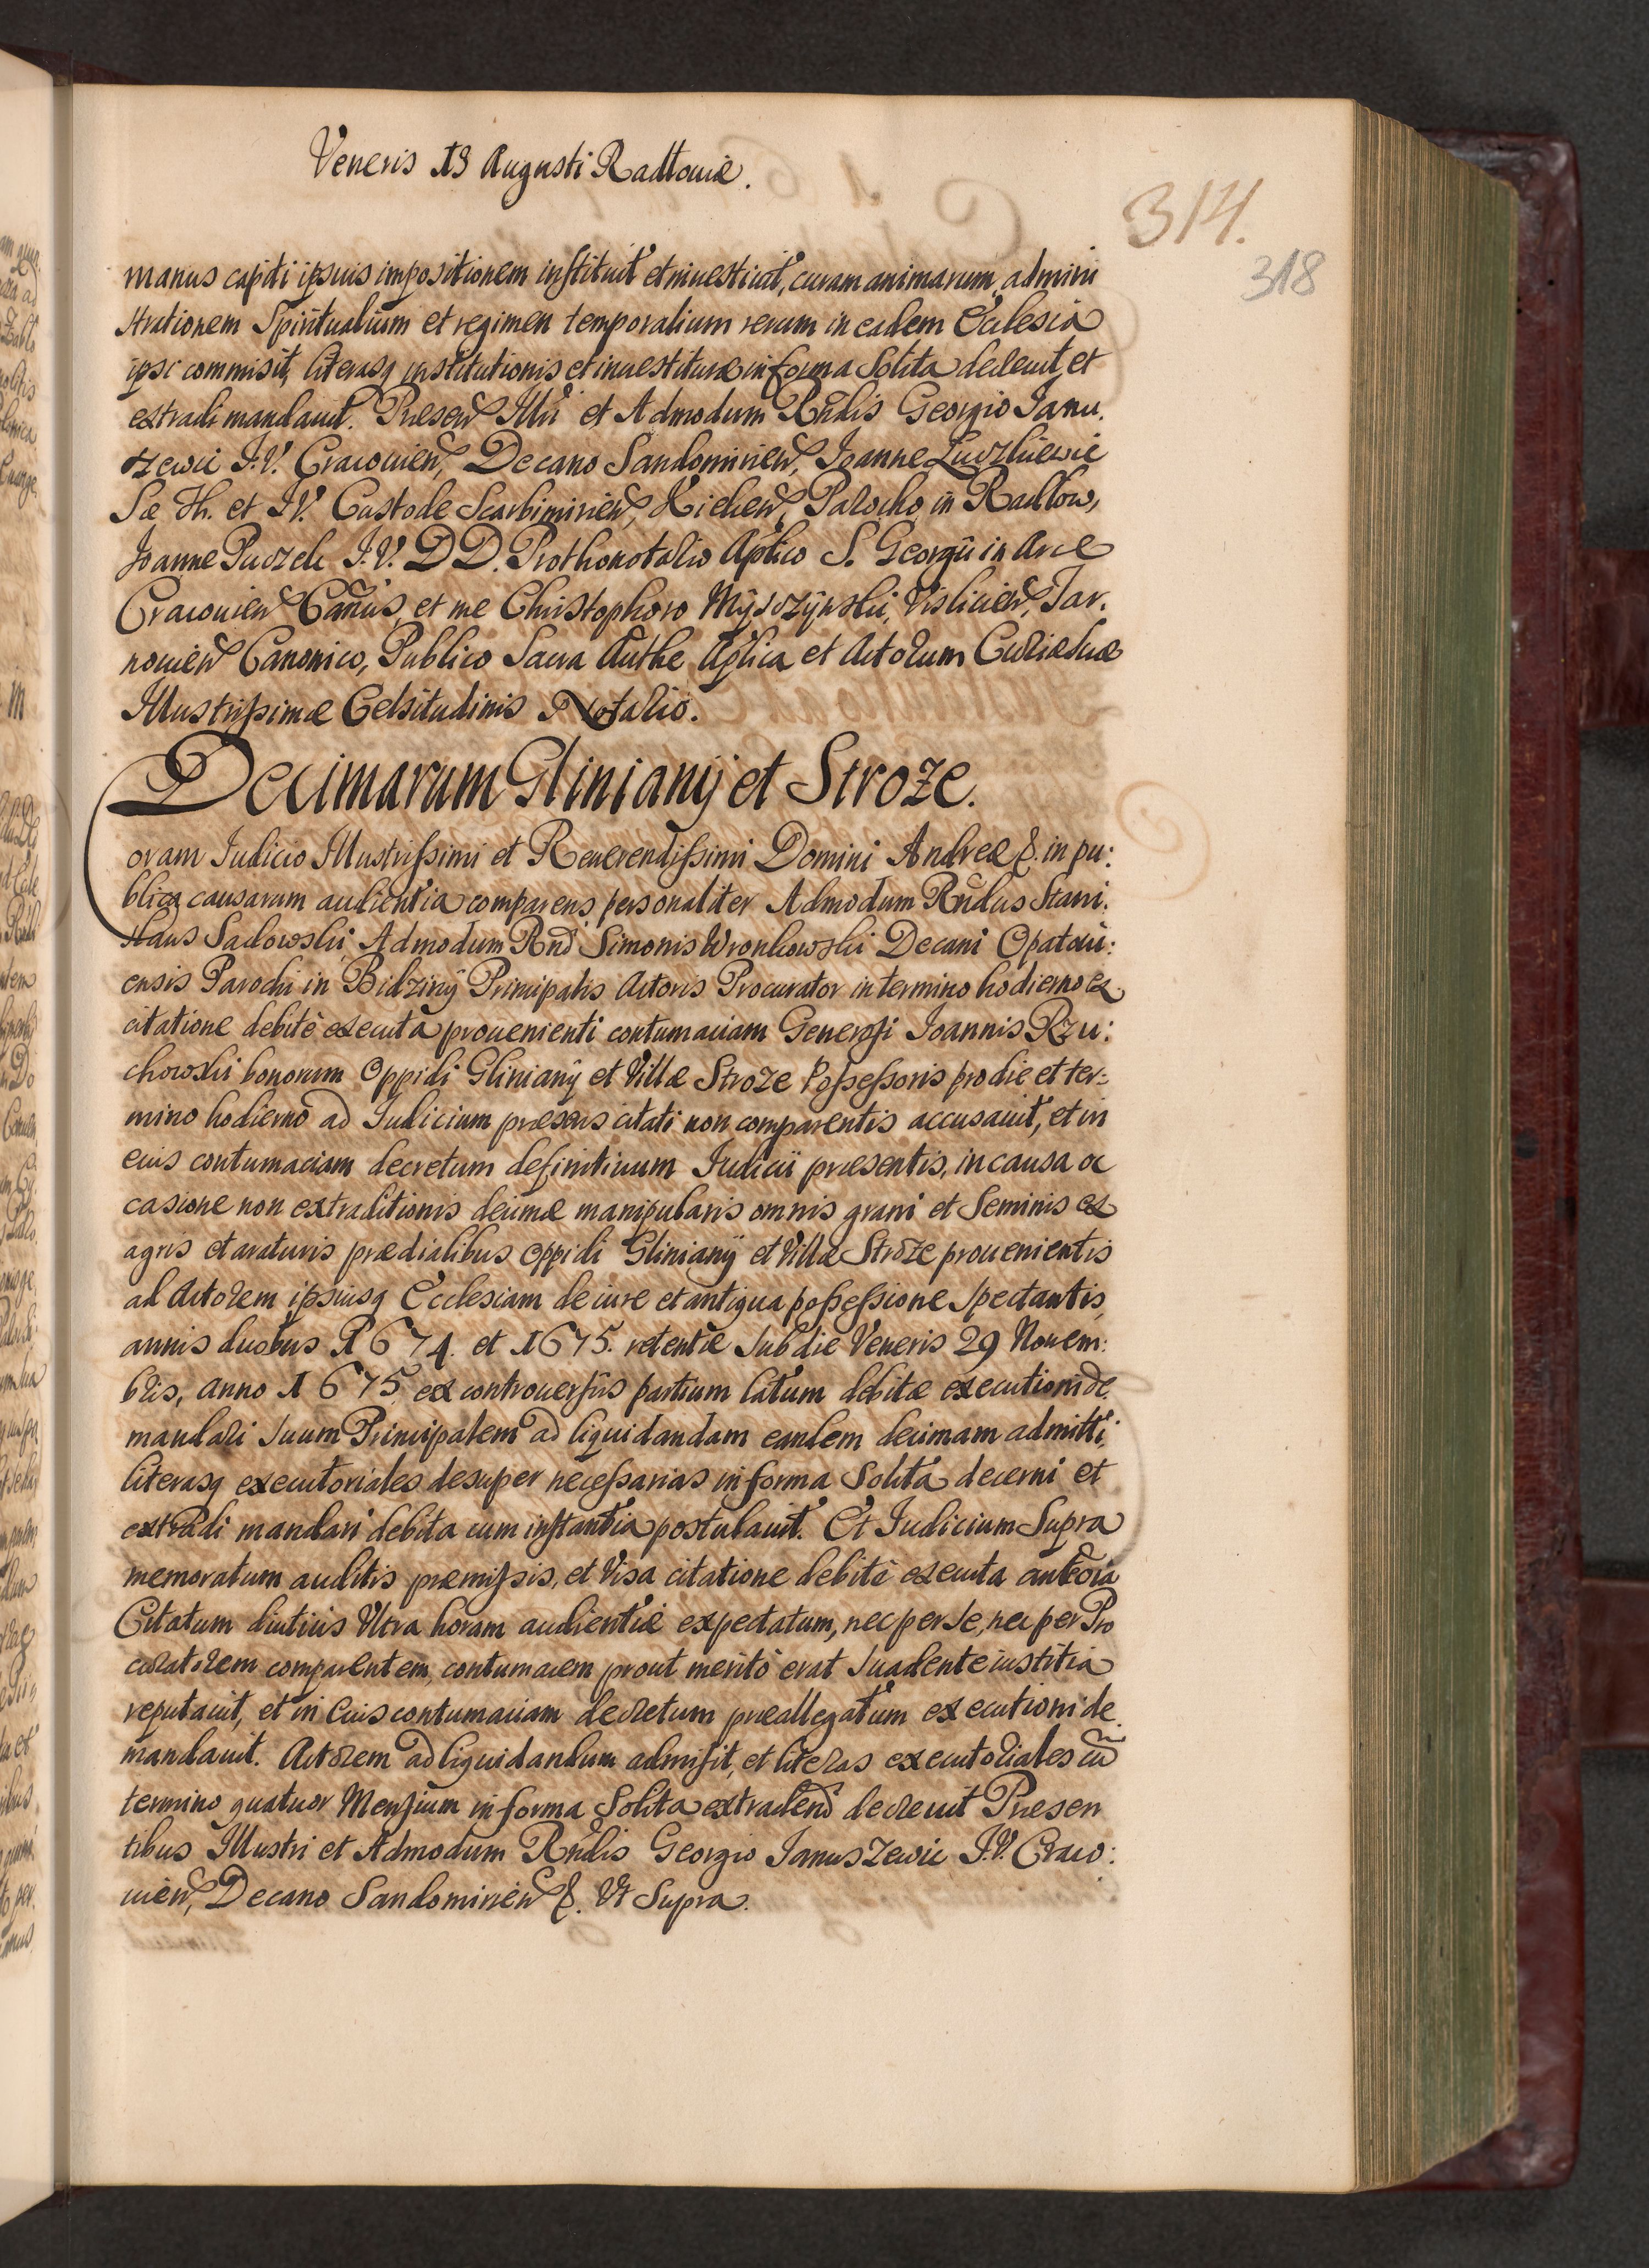 Veneris 13 Augusti Radlouiæ.
314.
318
manus capiti ipsius impositionem instituit et inuestiuit, curam animarum, admini
strationem Spiritualium et regimen temporalium rerum in eadem Ecclesia
ipsi commisit, literasq institutionis et inuestituræ in forma Solita decreuit, et
extradi mandauit. Presen Illri et Admodum Rndis Georgio Janu.
szewic I.V. Cracouien, Decano Sandomirien, Joanne
Sæ Th. et I.V. Custode Scarbimirien, Kielcen, Parocho in Radlow,
Joanne I.V. DD. Prothonotario Aplico S. Georgii in Arce
Cracouien Canus, et me Christophoro Visliciens, Tar.
nouien Canonico, Publico Sacra Authe Aplica et Actorum Curiæ Suæ
Illustrissimæ Celsitudinis Notario.
Decimarum Glinianÿ et Stroze.
oram Iudicio Illustrissimi et Reuerendissimi Domini Andreæ &. in pu:
blica causarum audientia comparens personaliter Admodum Rndus Stani.
slaus Sadowski, Admodum Rnd Simonis Wronkowski Decani Opatoui:
ensis Parochi in Bidzinÿ Principalis Actoris Procurator in termino hodierno ex
citatione debitè executa prouenienti contumaciam Generosi Joannis Rzu:
chowski bonorum Oppidi Glinianÿ et Villæ Stroze Possessoris pro die et ter:
mino hodierno ad Iudicium præsens citati non comparentis accusauit, et in
eius contumaciam decretum definitiuum Iudicii præsentis, in causa oc
casione non extraditionis decimæ manipularis omnis grani et Seminis ex
agris et araturis prædialibus oppidi Glinianÿ et Villæ Stroze prouenientis
ad Actorem ipsiusq Ecclesiam de iure et antiqua possessione Spectantis,
annis duobus 1674. et 1675. retentæ Sub die Veneris 29 Nouem:
bris, anno 1675 ex controuersiis partium latum debitæ executioni de
mandari Suum Principalem ad liquidandam eandem decimam admitti,
literasq executoriales desuper necessarias in forma Solita decerni et
extradi mandari debita cum instantia postulauit. Et Iudicium Supra
memoratum auditis præmissis, et Visa citatione debitè executa
Citatum diutius Vltra horam audientiæ expectatum, nec per Se, nec per Pro
curatorem comparentem, contumacem prout meritò erat Suadente iustitia
reputauit, et in Eius contumaciam decretum præallegatum executioni de
mandauit. Actorem ad liquidandum admisit, et literas executoriales cu
termino quatuor Mensium in forma Solita extradend decreuit Præsen
tibus Illustri et Admodum Rndis Georgio Januszewic I.V. Craco:
uien, Decano Sandomirien &. Vt Supra.